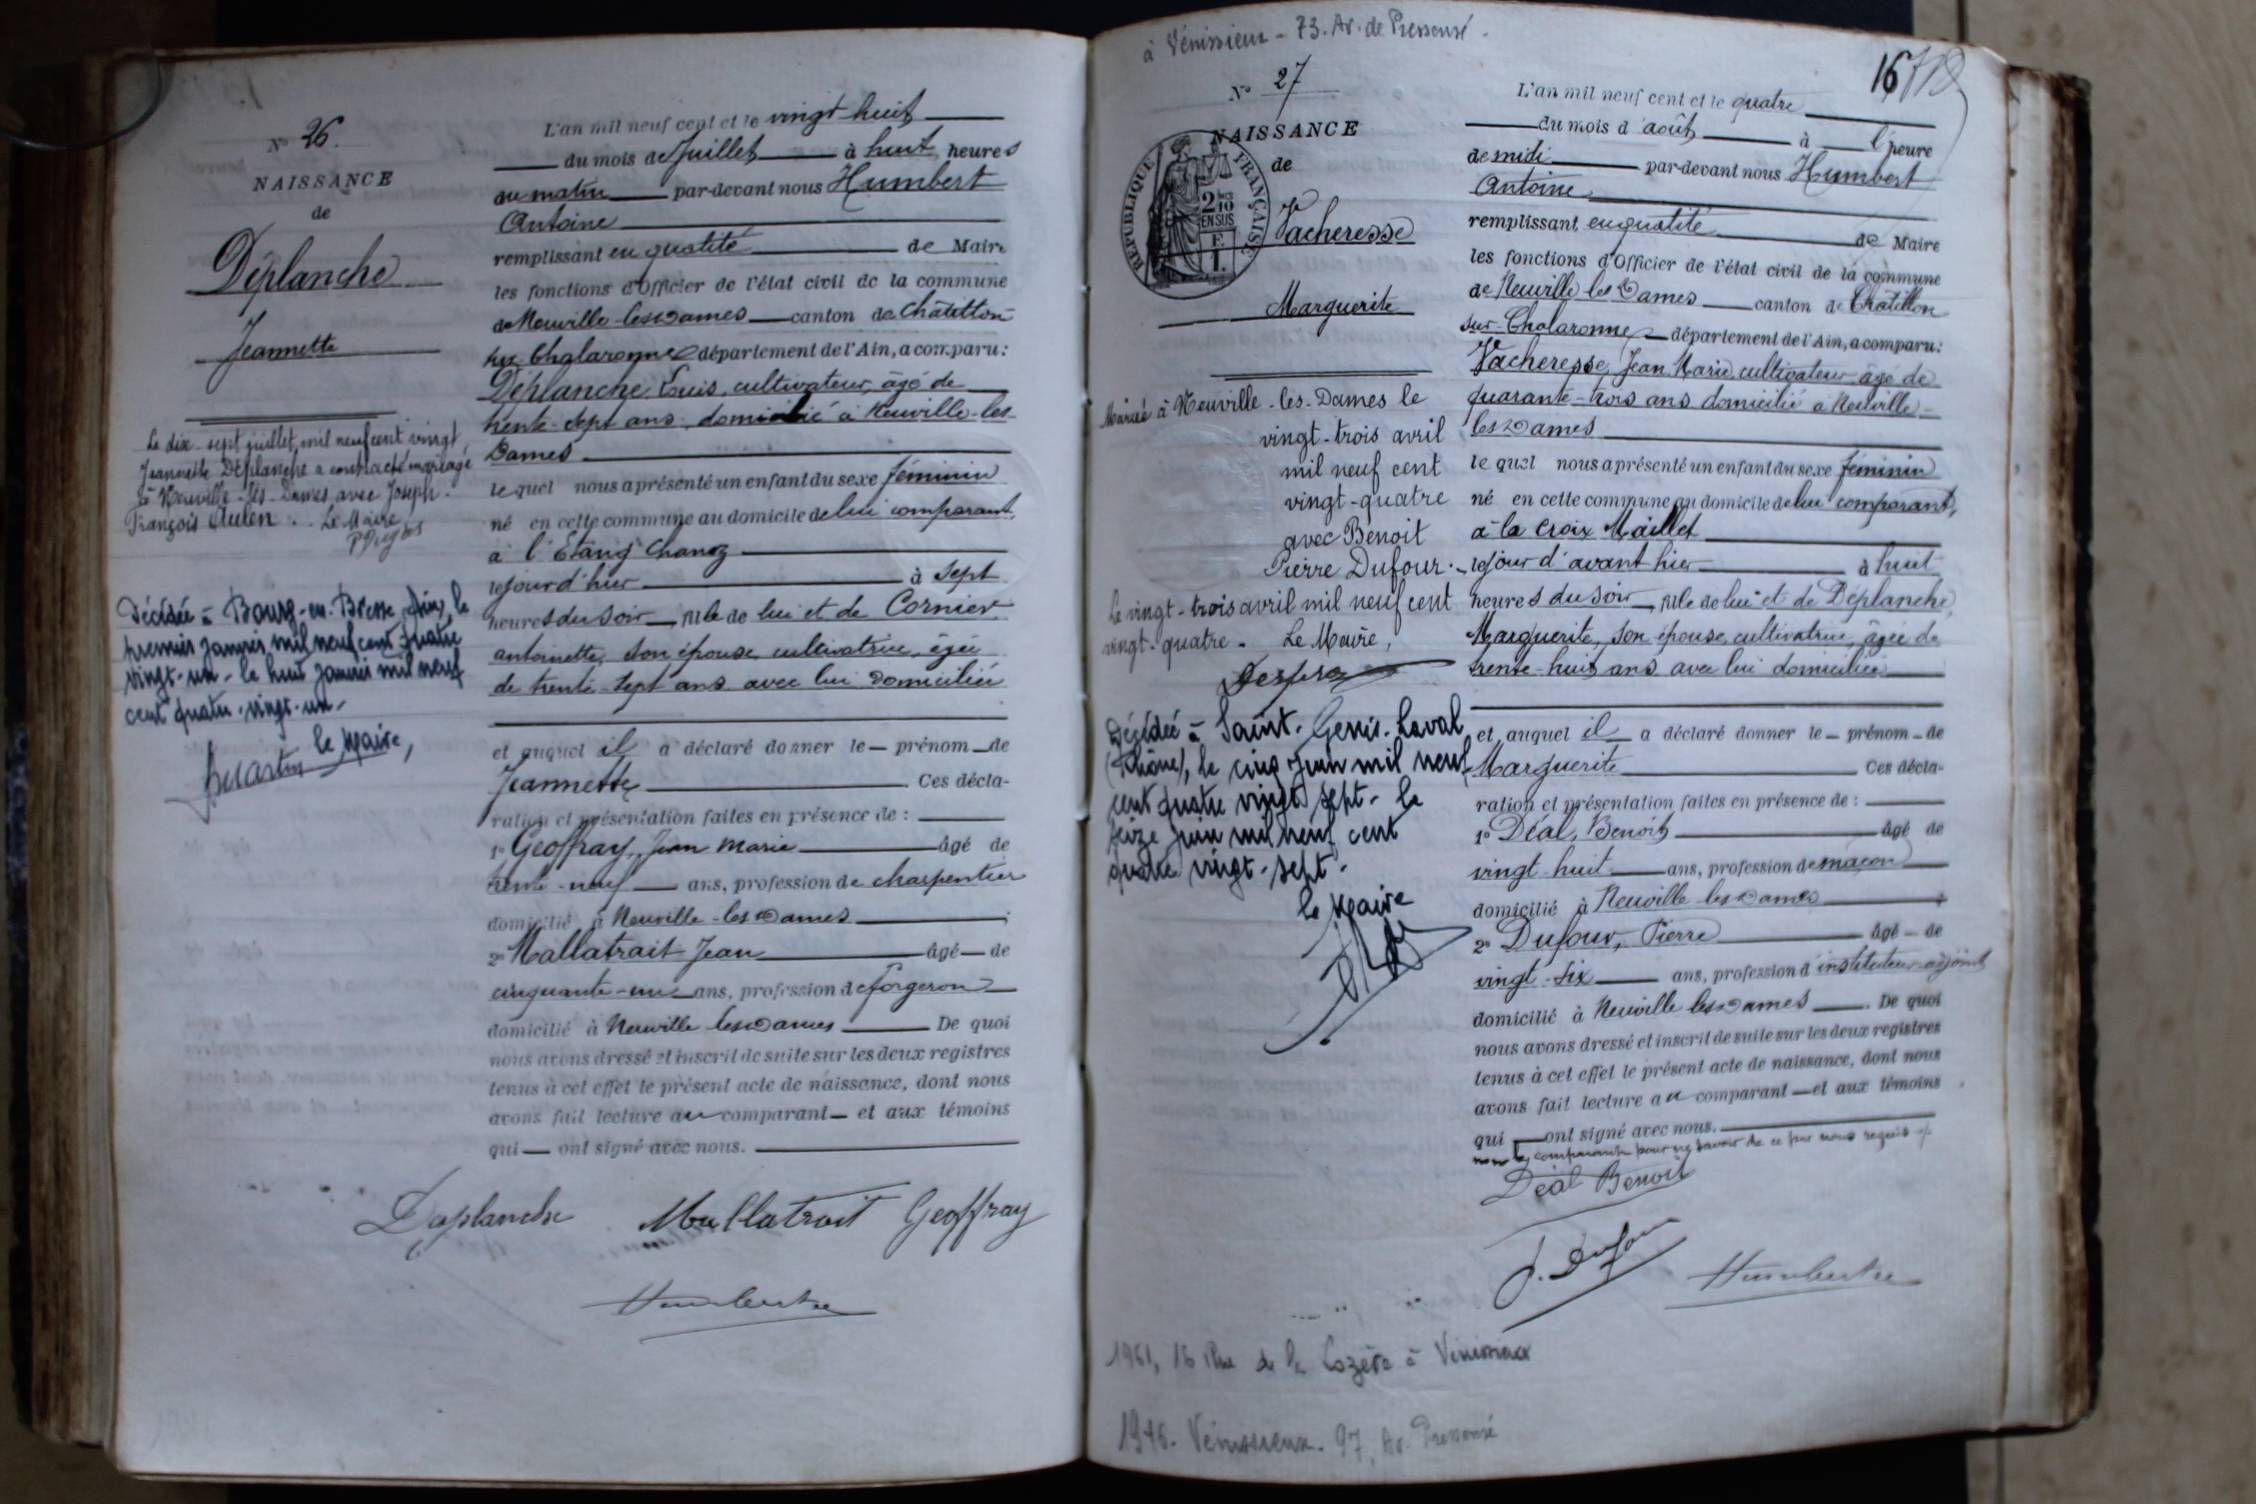 N° 26.
NAISSANCE
de
Déplanche
Jeannette
Le dix-sept juillet, mil neuf cent vingt,
Jeannette Déplanche a contracté mariage
à Neuville-les-Dames avec Joseph-
François Aulen. Le Maire
Décédée à Bourg-en-Bresse (Ain) le
premier janvier mil neuf cent quatre
vingt-un - le huit janvier mil neuf
cent quatre-vingt-un.
le Maire,
L'an mil neuf cent et le vingt huit
du mois de Juillet à huit heures
du matin par-devant nous Humbert
Antoine
remplissant en qualité de Maire
les fonctions d'Officier de l'état civil de la commune
de Neuville-les-Dames canton de Châtillon
sur-Chalaronne département de l'Ain, a comparu:
Déplanche, Louis, cultivateur, âgé de
trente-sept ans, domicilié à Neuville-les-
Dames
lequel nous a présenté un enfant du sexe féminin
né en cette commune au domicile de lui comparant,
à l'Etang Chanoz
le jour d'hier à sept
heures du soir fille de lui et de Cornier,
antoinette, son épouse, cultivatrice, âgée
de trente-sept ans avec lui domiciliée
et auquel il a déclaré donner le prénom de
Jeannette. Ces décla-
ration et présentation faites en présence de :
1° Geoffray, Jean Marie âgé de
trente-neuf ans, profession de charpentier
domicilié à Neuville-les-Dames ;
2° Mallatrait Jean âgé de
cinquante-un ans, profession de forgeron
domicilié à Neuville les Dames De quoi
nous avons dressé et inscrit de suite sur les deux registres
tenus à cet effet le présent acte de naissance, dont nous
avons fait lecture au comparant et aux témoins
qui ont signé avec nous.
Déplanche Mallatrait Geoffray
Humbert
à Vénissieux - 73. Av. de Pressensé.
16
N° 27
NAISSANCE
de
RÉPUBLIQUE FRANÇAISE
2 10
EN SUS
F.
1.
Vacheresse
Marguerite
Mariée à Neuville-les-Dames le
vingt-trois avril
mil neuf cent
vingt-quatre
avec Benoit
Pierre Dufour.
Le vingt-trois avril mil neuf cent
vingt-quatre. Le Maire,
Décédée à Saint-Genis-Laval
(Rhône), le cinq juin mil neuf
cent quatre vingt sept. le
seize juin mil neuf cent
quatre vingt-sept.
le Maire
L'an mil neuf cent et le quatre
du mois d'août à l'heure
de midi par-devant nous Humbert
Antoine
remplissant en qualité de Maire
les fonctions d'Officier de l'état civil de la commune
de Neuville les Dames canton de Châtillon
sur-Chalaronne département de l'Ain, a comparu:
Vacheresse, Jean Marie, cultivateur, âgé de
quarante-trois ans domicilié à Neuville-
les Dames
lequel nous a présenté un enfant du sexe féminin
né en cette commune au domicile de lui comparant,
à la Croix Maillet
le jour d'avant hier à huit
heures du soir, fille de lui et de Déplanche,
Marguerite, son épouse, cultivatrice, âgée de
trente-huit ans avec lui domiciliée
et auquel il a déclaré donner le prénom de
Marguerite Ces décla-
ration et présentation faites en présence de :
1° Déal, Benoit âgé de
vingt huit ans, profession de maçon
domicilié à Neuville les Dames ;
2° Dufour, Pierre âgé de
vingt-six ans, profession d'instituteur-adjoint
domicilié à Neuville les Dames. De quoi
nous avons dressé et inscrit de suite sur les deux registres
tenus à cet effet le présent acte de naissance, dont nous
avons fait lecture au comparant et aux témoins
qui ont signé avec nous.
non le comparant pour ne savoir de ce par nous requis
Déal Benoit
J. Dufour Humbert
1961, 16 Rue de la Lozère à Vénissieux
1946. Vénissieux. 97, Av. Pressensé